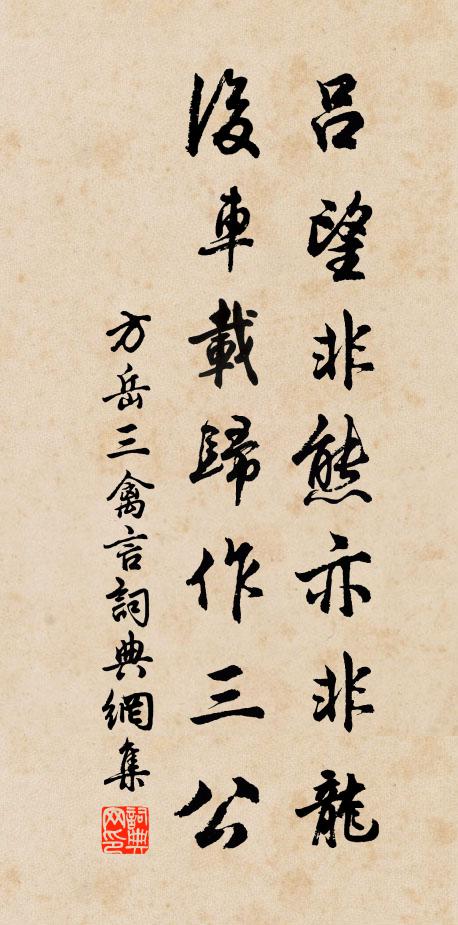 呂望非熊亦非龍
後車載歸作三公
方岳三禽言詞典網集
詞典網印